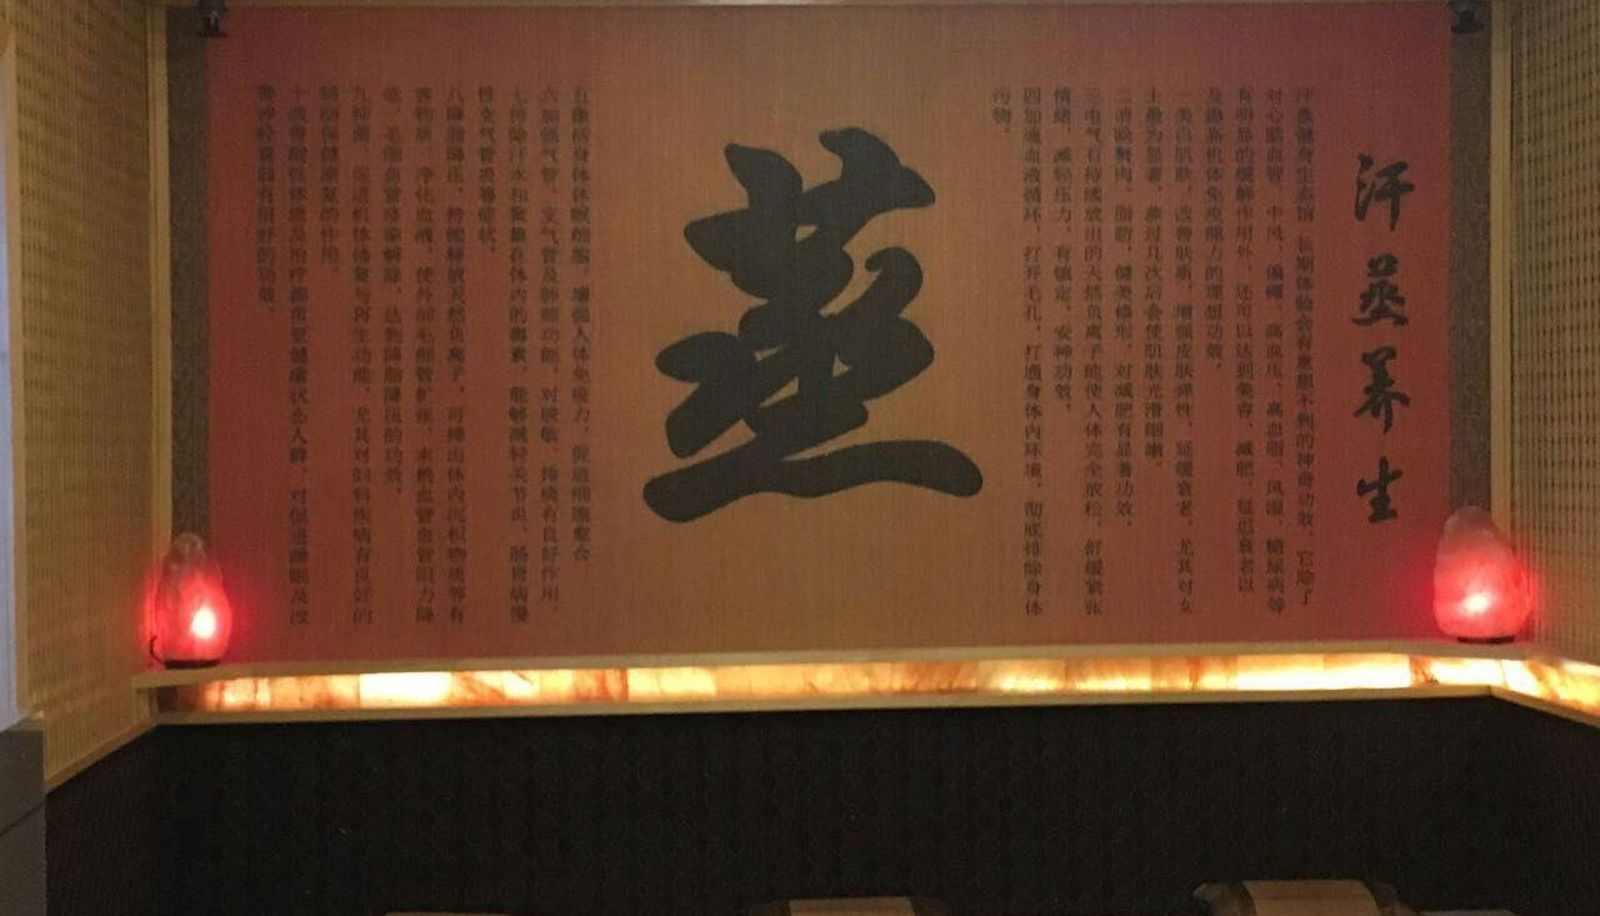 汗蒸养生
汗蒸健身生态馆，长期体验会有意想不到的神奇功效，它除了
对心脑血管、中风、偏瘫、高血压、高血脂、风湿、糖尿病等
有明显的缓解作用外，还可以达到美容、减肥、延迟衰老以
及激活机体免疫能力的理想功效。
一美白肌肤、改善肤质、增强皮肤弹性、延缓衰老、尤其对女
士最为显著，蒸过几次后会使肌肤光滑细嫩。
二消除赘肉、脂肪，健美修形，对减肥有显著功效。
三电气石持续放出的天然负离子能使人体完全放松，舒缓紧张
情绪、减轻压力，有镇定、安神功效。
四加速血液循环，打开毛孔，打通身体内环境，彻底排除身体
污物。
蒸
五激活身体休眠细胞，增强人体免疫力，促进细胞愈合
六加强气管、支气管及肺部功能，对咳嗽、痔疾有良好作用。
七排除汗水和聚集在体内的毒素，能够减轻关节炎、肠胃病慢
性支气管炎等症状。
八降脂降压，持续释放天然负离子，可排出体内沉积物质等有
害物质，净化血液，使外部毛细管扩张，末梢血管血管阻力降
低，毛细血管痉挛解除，达到降脂降压的功效。
九抑菌，促进机体修复与再生功能，尤其对妇科疾病有良好的
辅助保健康复的作用。
十改善酸性体质及治疗都市亚健康状态人群，对促进睡眠及改
善神经衰弱有很好的功效。